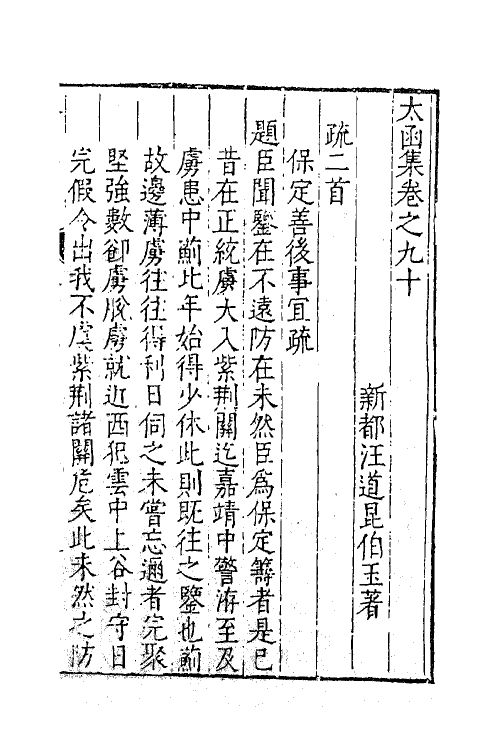 太函集卷之九十
新都汪道昆伯玉著
疏二首
保定善後事宜疏
題臣聞鑒在不遠防在未然臣爲保定籌者是已
昔在正統虜大入紫荆關迄嘉靖中警洊至及
虜患中薊比年始得少休此則既往之鑒也薊
故邊薄虜往往得利日伺之未嘗忘邇者完聚
堅強數卻虜脫虜就近西犯雲中上谷封守日
完假令出我不虞紫荆諸關危矣此未然之防